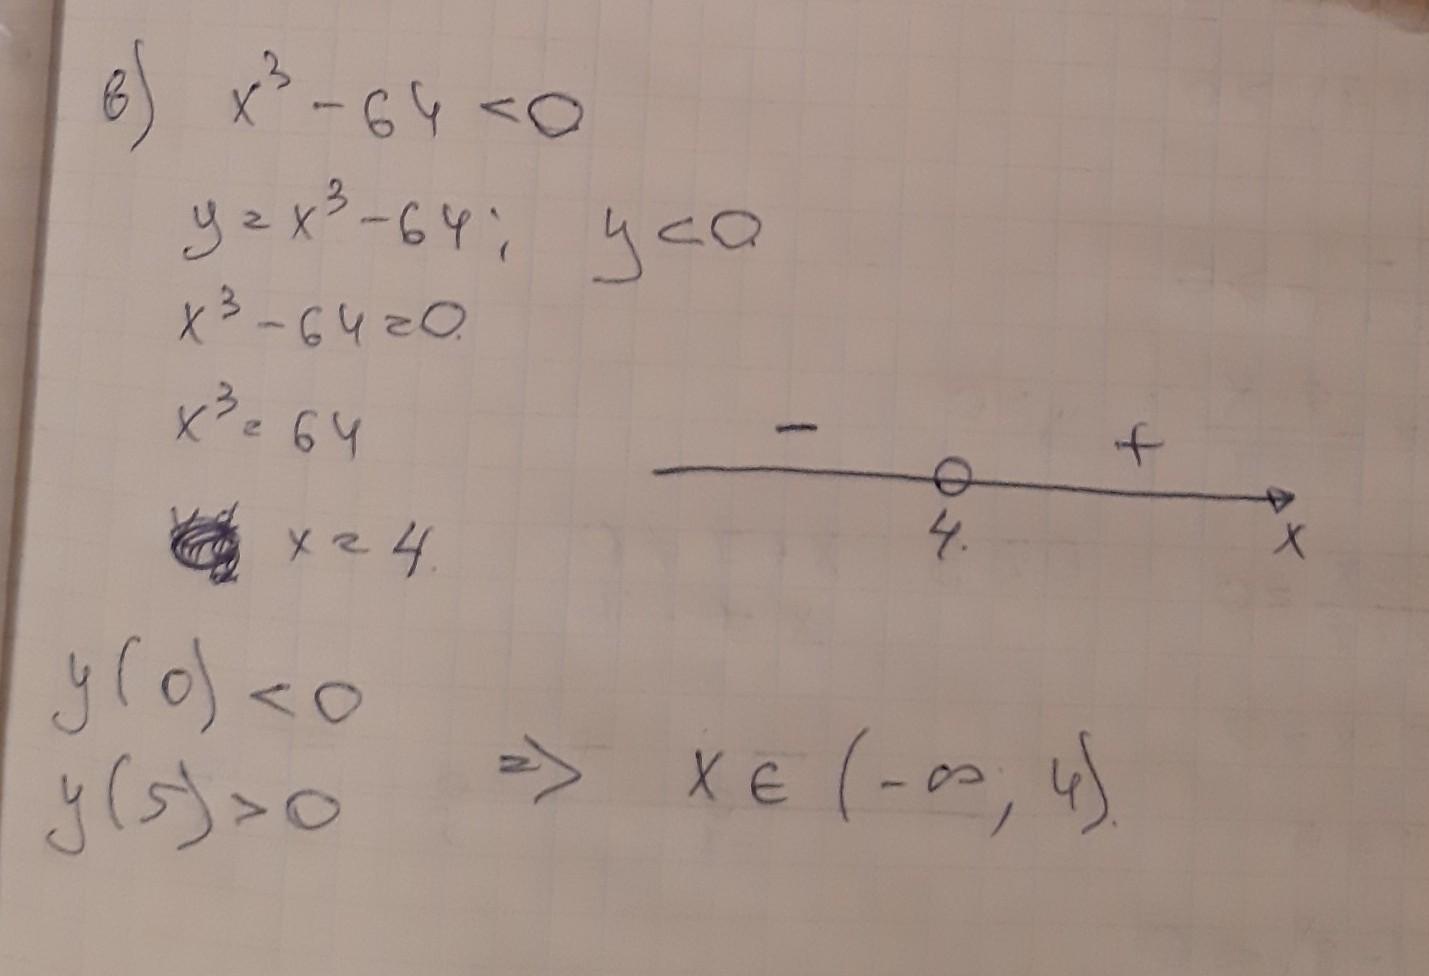 в) x³ - 64 < 0
y = x³ - 64; y < 0
x³ - 64 = 0.
x³ = 64
x = 4.
- +
4. x
y(0) < 0
y(5) > 0 => x ∈ (-∞, 4).